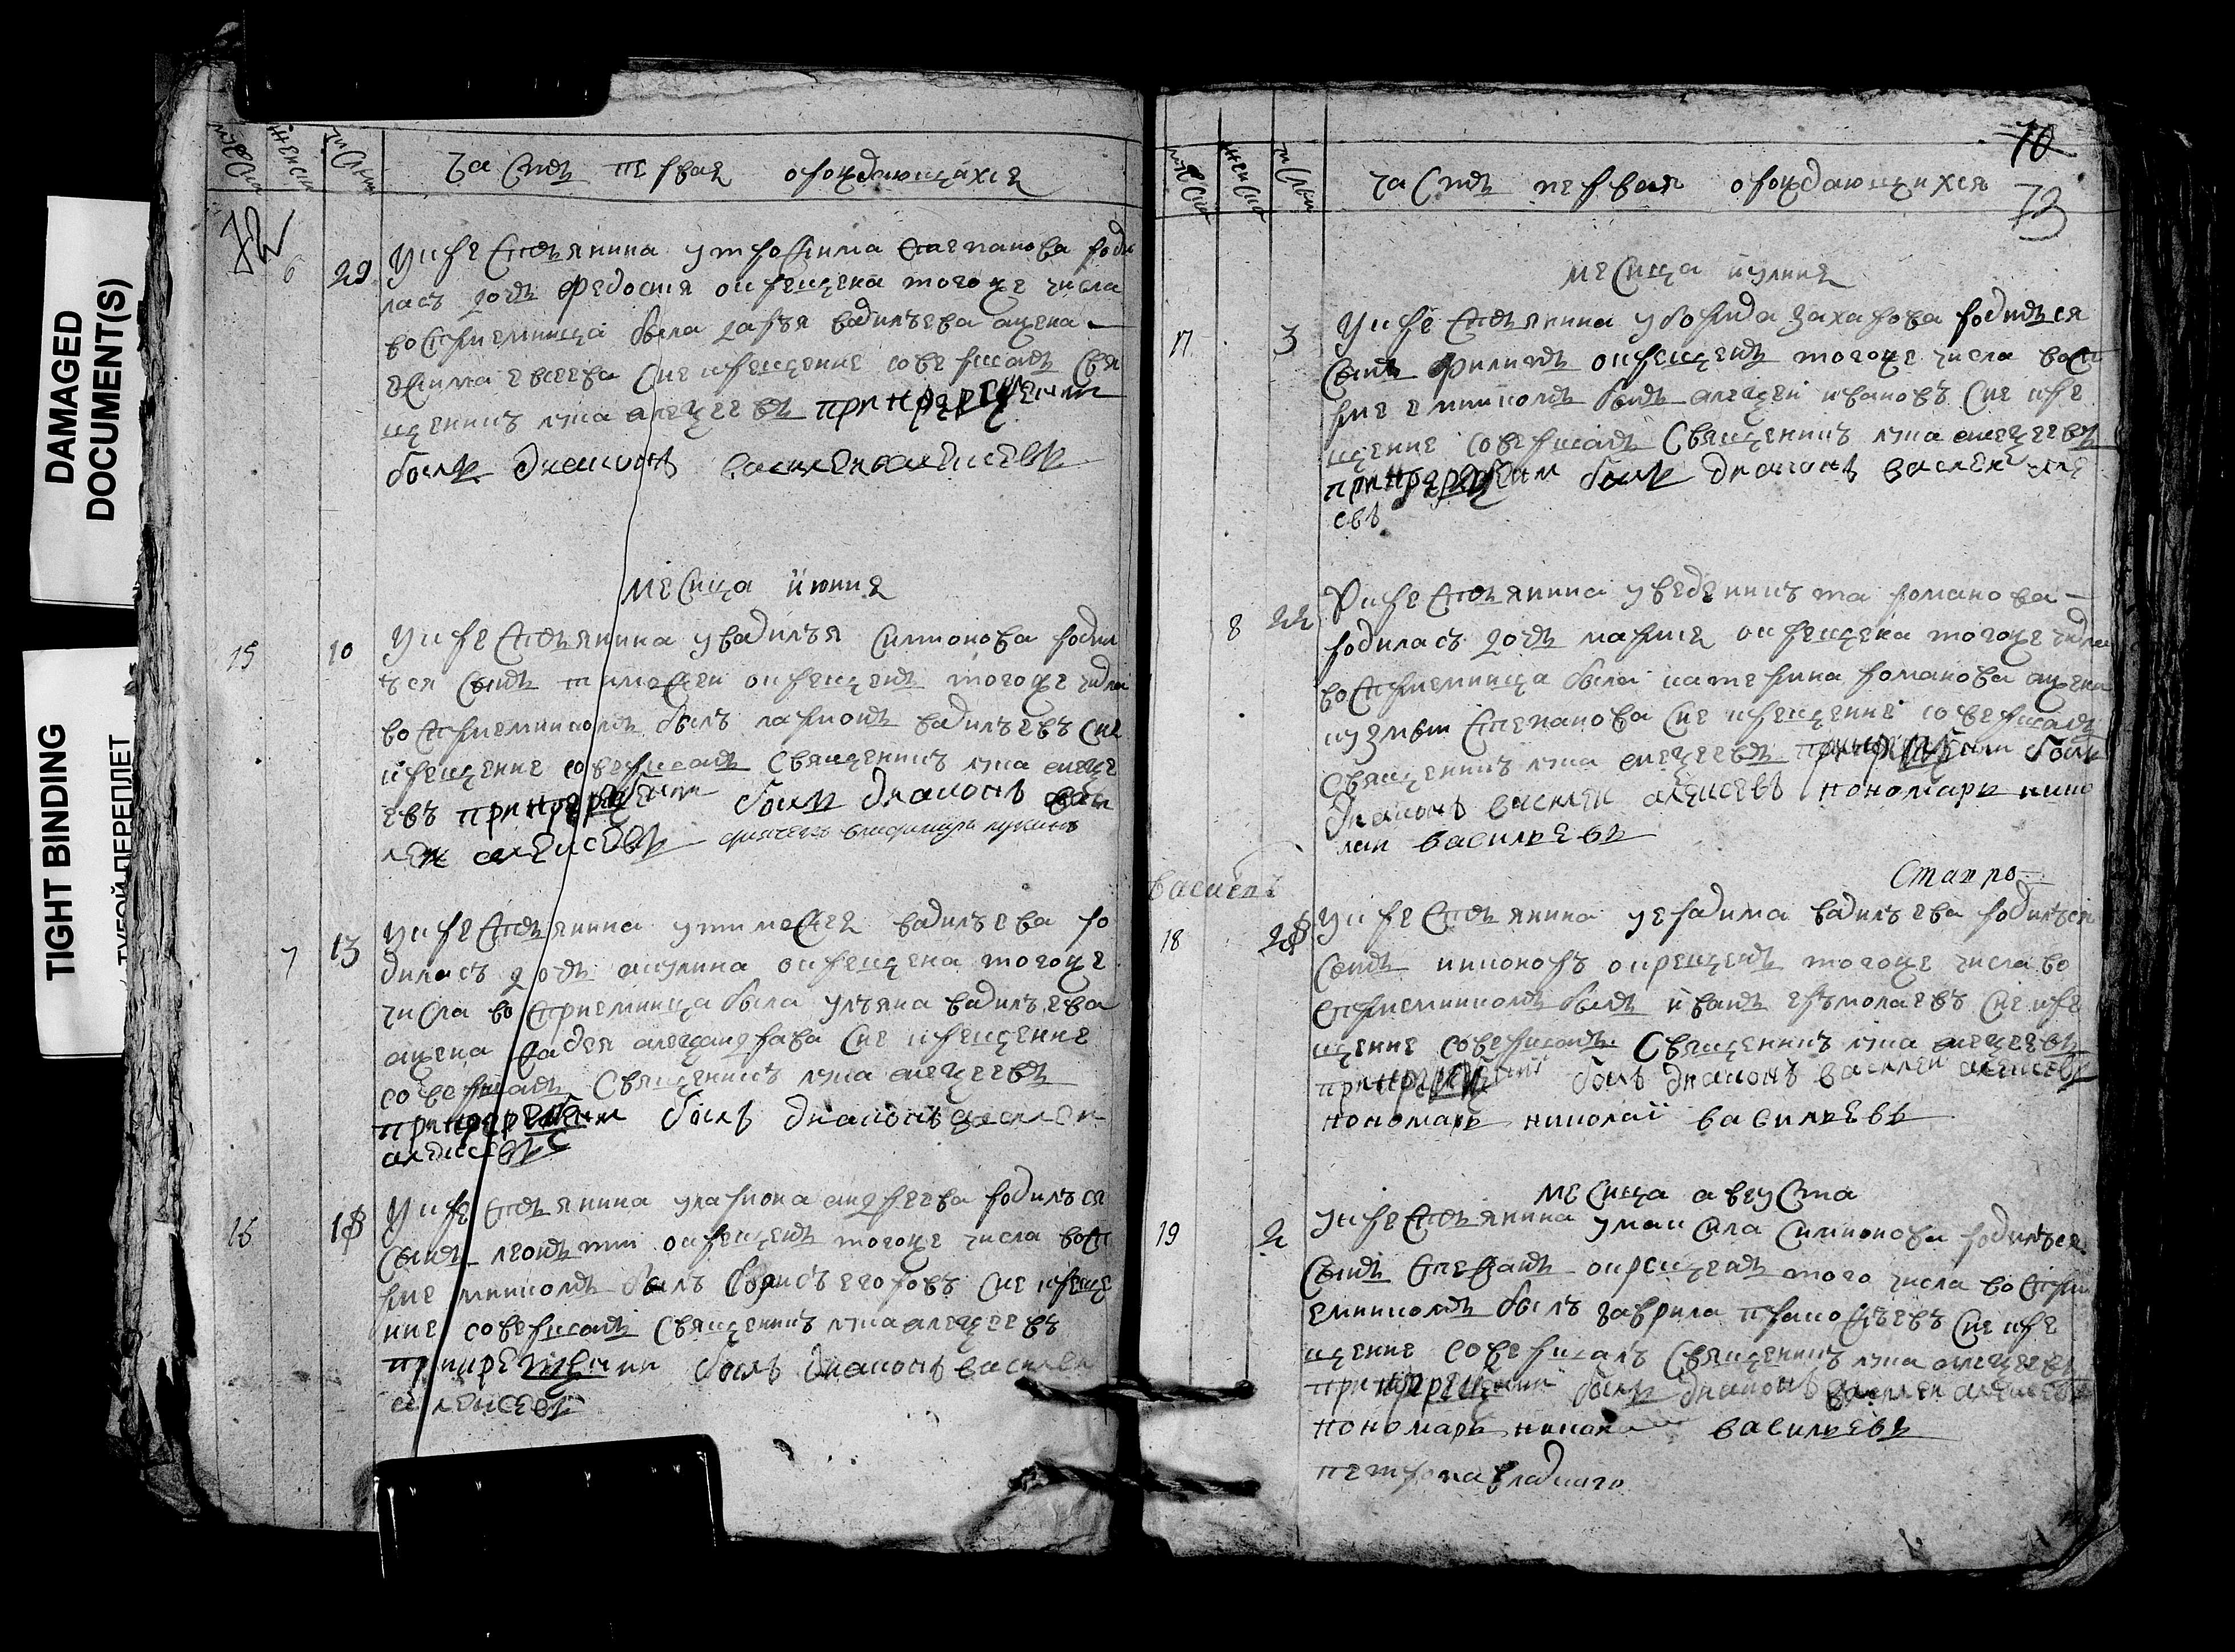 DAMAGED
DOCUMENT(S)
TIGHT BINDING
ТУГОЙ ПЕРЕПЛЕТ
мужеска
женска
числы
часть первая о рождающихся
72
6 29 У крестьянина у трофима степанова роди
лась дочь федосия окрещена того же числа
восприемница была дарья
ефима евсеева сие крещение совершалъ свя
щенникъ лука алексеевъ при крещении
былъ диаконъ василеи алексеевъ
месяца июния
15 10 У крестьянина у симионова родил
ъся сынъ тимофеи окрещенъ того же числа
восприемникомъ былъ ларионъ сие
крещение совершалъ священникъ лука алексе
евъ при крещении былъ диаконъ васи
леи алексеевъ
7 13 У крестьянина у тимофея ро
дилась дочь акулина окрещена того же
числа восприемница была ульяна
жена фадея александрава сие крещение
совершалъ священникъ лука алексеевъ
при крещении былъ диаконъ василеи
алексеевъ
16 18 У крестьянина у лариона андреева родилъся
сынъ леонътии окрещенъ того же числа восп
риемникомъ былъ борисъ егоровъ сие креще
ние совершалъ священникъ лука алексеевъ
при крещении былъ диаконъ василеи
алексеевъ
70
мужеска
женска
числы
часть первая о рождающихся
73
месяца июлия
17 3 У крестьянина у захарова родился
сынъ филипъ окрещенъ того же числа восп
риемникомъ былъ алексеи ивановъ сие кре
щение совершалъ священникъ лука алексеевъ
при крещении былъ диаконъ василеи алек
сеевъ
8 22 У крестьянина у веденикъта романова
родилась дочь мария окрещена того же числа
восприемница была катерина романова жена
кузмы степанова сие крещение совершалъ
священникъ лука алексеевъ при крещении былъ
диаконъ василеи алексеевъ пономарь нико
лаи васильевъ
18 28 У крестьянина у родилъся
сынъ никоноръ окрещенъ того же числа во
сприемникомъ былъ иванъ ерьмолаевъ сие кре
щение совершалъ священникъ лука алексеевъ
при крещении былъ диаконъ василеи алексеевъ
пономарь николаи васильевъ
месяца августа
19 2 У крестьянина у максима симионова родилъся
сынъ степанъ окрещенъ того числа воспри
емникомъ былъ гаврила пракофьевъ сие кре
щение совершалъ священникъ лука алексеевъ
при крещении былъ диаконъ василеи алексеевъ
пономарь николаи васильевъ